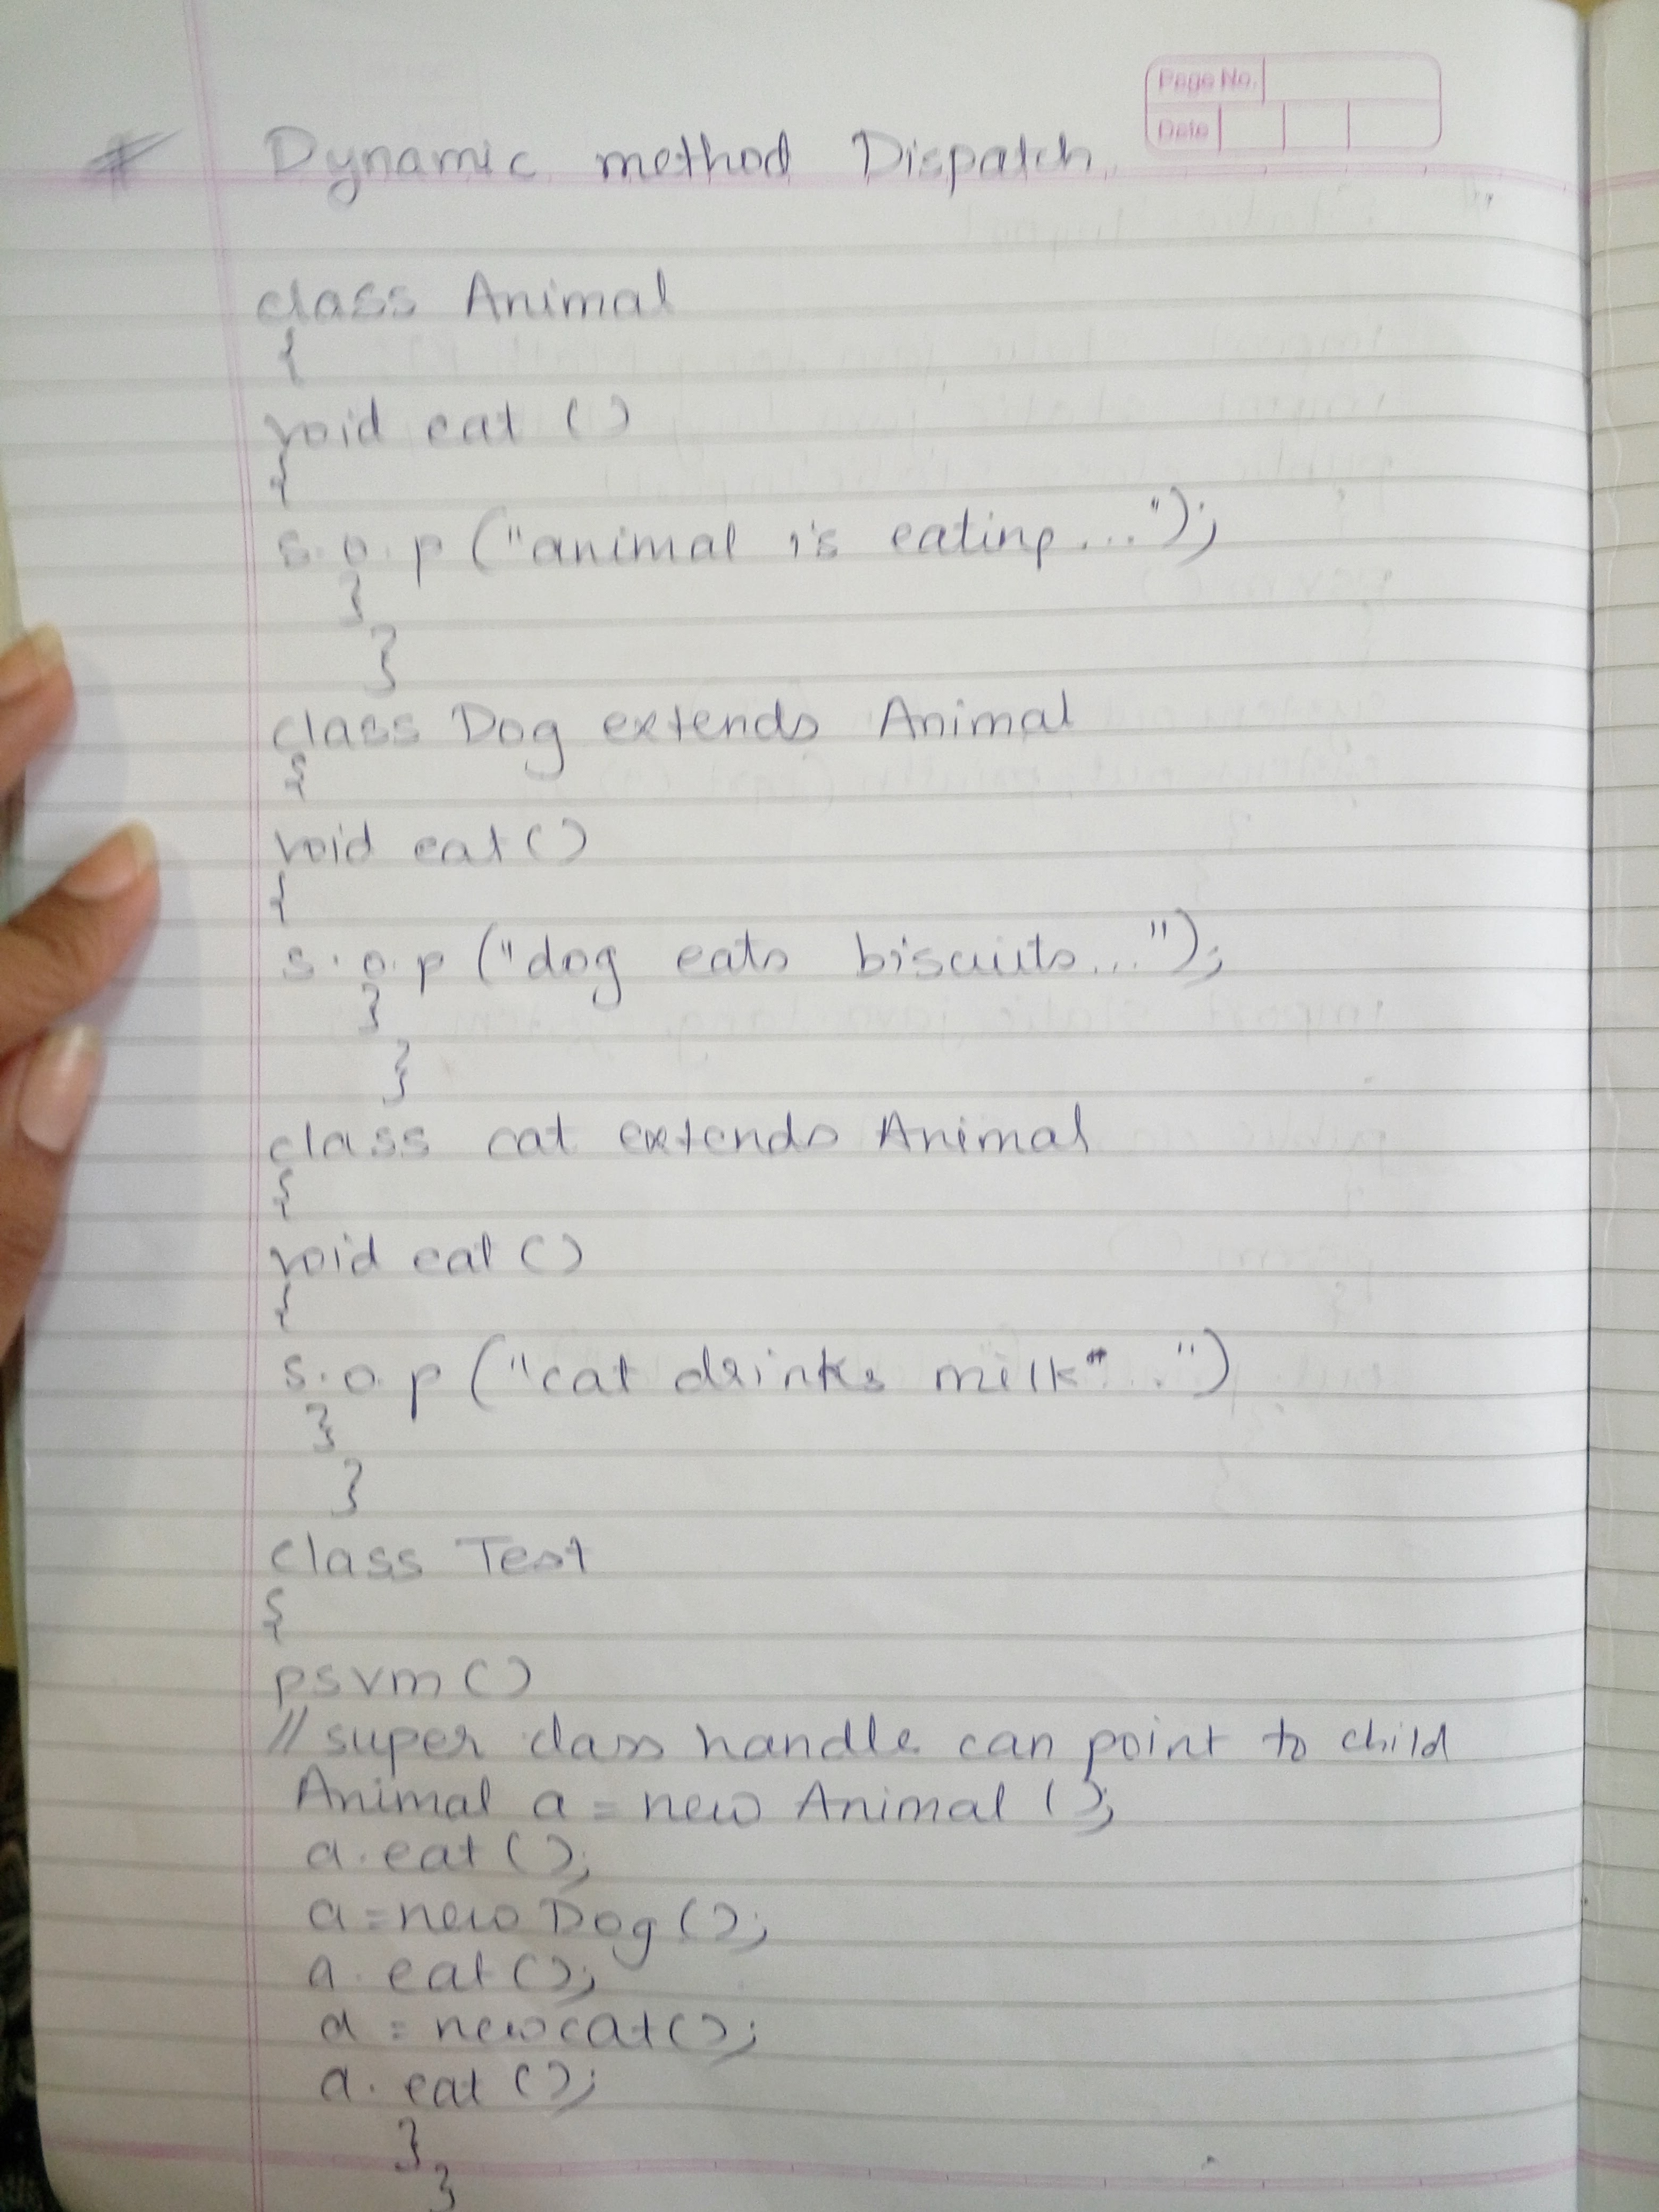 Page No.
Date
# Dynamic method Dispatch
class Animal
{
void eat ()
{
s.o.p ("animal is eating...");
}
}
class Dog extends Animal
{
void eat ()
{
s.o.p ("dog eats biscuits...");
}
}
class cat extends Animal
{
void eat ()
{
s.o.p ("cat drinks milk...")
}
}
class Test
{
psvm ()
// super class handle can point to child
Animal a = new Animal ();
a.eat ();
a = new Dog ();
a.eat ();
a = new cat ();
a.eat ();
}
}